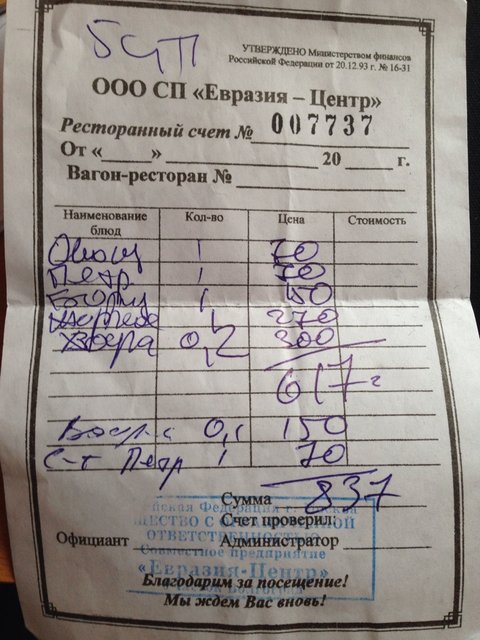 УТВЕРЖДЕНО Министерством финансов
Российской Федерации от 20.12.93 г. № 16-31
ООО СП «Евразия – Центр»
Ресторанный счет № 007737
От «____» ____ 20 ____ г.
Вагон-ресторан №
Наименование блюд Кол-во Цена Стоимость
1 70
Петр 1 70
1
1 270
0,2 300
617
0,1 150
С-т Петр 1 70
Сумма 837
Счет проверил:
Официант Администратор
ОТВЕТСТВЕННОСТЬЮ
Совместное предприятие
«Евразия-Центр»
Благодарим за посещение!
Мы ждем Вас вновь!